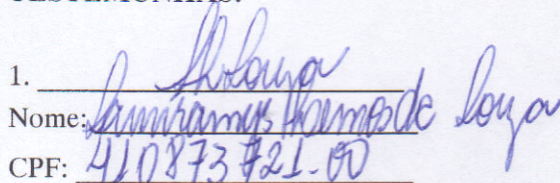 TESTEMUNHAS:
1.
Nome: Samiramys Lemos de Souza
CPF: 410873721-00